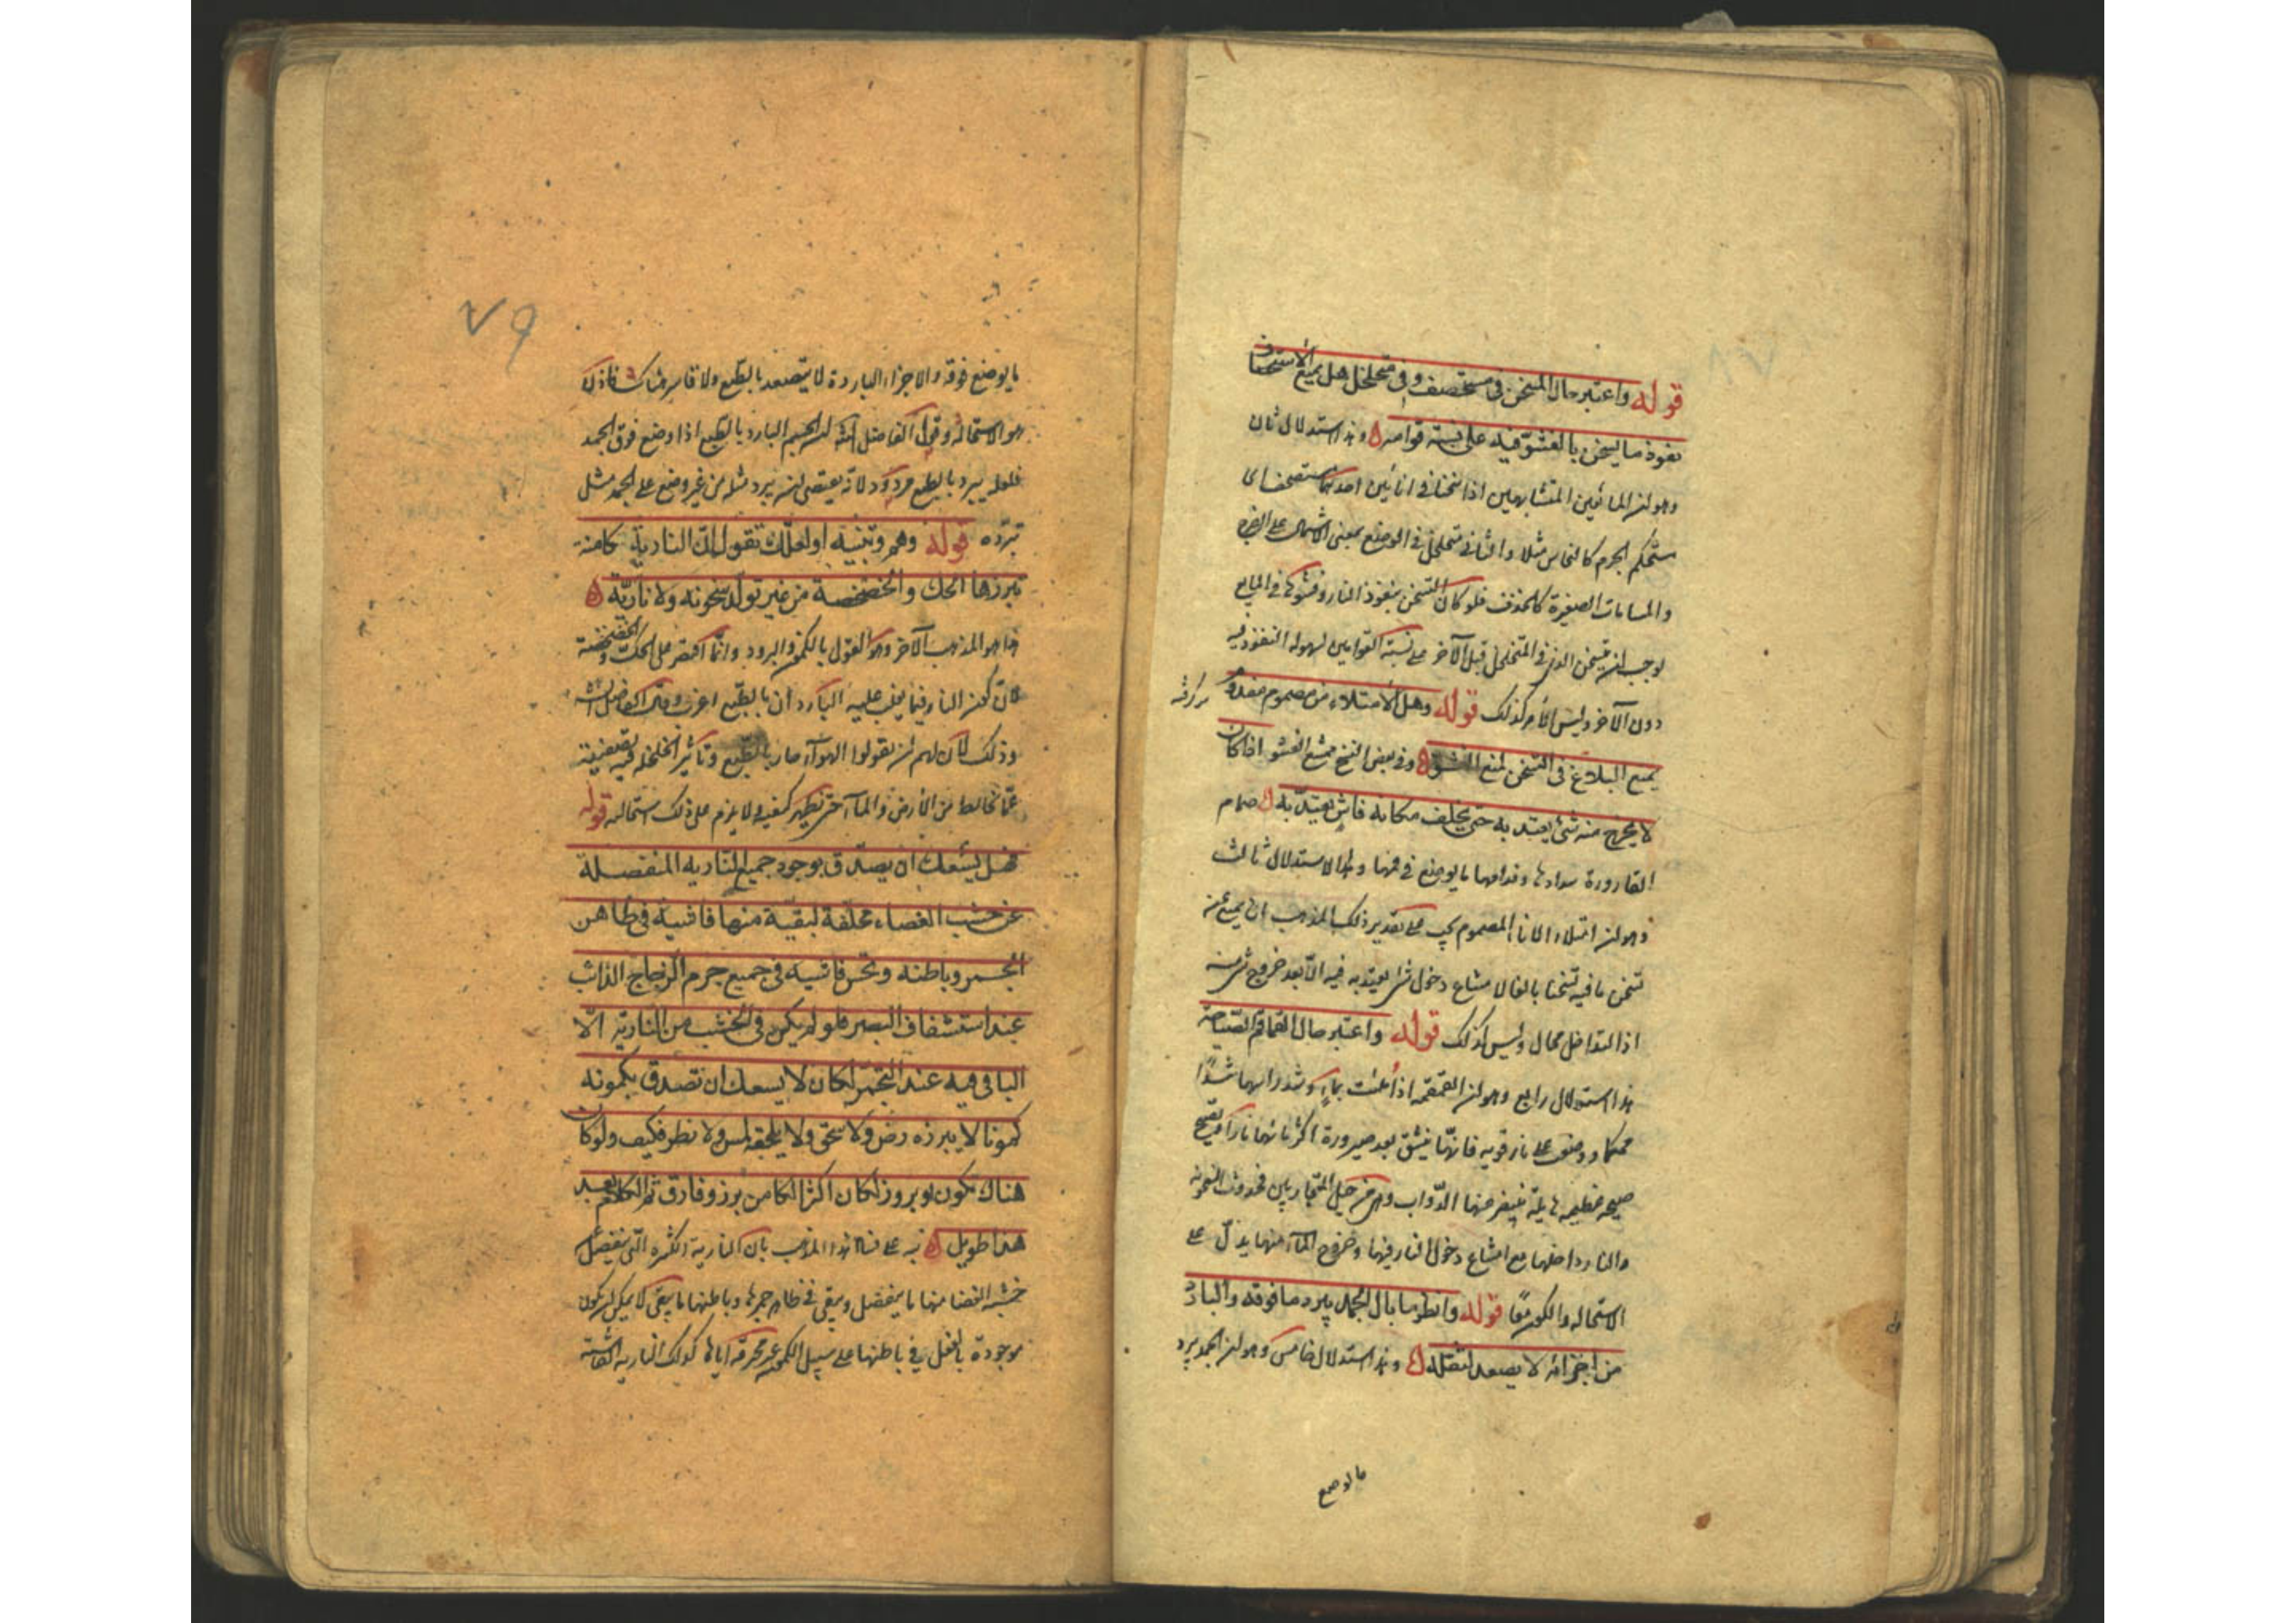 قوله واعتبر حال المسخن فى مستخصف وفى متخلخل هل يمنع الاستحصاف
نفوذ ما يسخن بالفشو فيه على نسبة قوامه ه وهذا استدلال ثان
وهو ان المائعين المتشابهين اذا سخنا فى انائين احدهما مستحصف اى
مستحكم الجرم كالنحاس مثلا والثانى متخلخل فى الوضع بمعنى الاشتمال على الفرج
والمسامات الصغيرة كالخزف فلو كان التسخن بنفوذ النار وفشوها فى المايع
لوجب ان يتسخن الذى فى المتخلخل قبل الآخر على نسبة القوامين لسهولة النفوذ فيه
دون الآخر وليس الأمر كذلك قوله وهل الأمتلاء من مصموم مفدوم
يمنع البلاغ فى التسخن لمنع الفشو ه وفى بعض النسخ يمنع الفشو اذا كان
لا يخرج منه شئ يعتد به حتى يخلف مكانه فاش يعتد به ه صمام
القارورة سدادها وفدامها ما يوضع فى فمها وهذا الاستدلال ثالث
وهو ان امتلاء الاناء المصموم يجب على تقدير ذلك المذهب ان يمنع عن
تسخن ما فيه تسخنا بالغا لامتناع دخول شئ يعتد به فيه الا بعد خروج شئ منه
اذ التداخل محال وليس كذلك قوله واعتبر حال القماقم الصياحة
هذا استدلال رابع وهو ان القمقمة اذا ملئت بماء وشد راسها شدّا
محكما ووضعت على نار قوية فانها تنشق بعد صيرورة اكثر مائها نارا وتصيح
صيحة عظيمة هايلة ينفر منها الدواب وهى من حيل المتحاربين فحدوث السخونة
والنار داخلها مع امتناع دخول النار فيها وخروج الماء منها يدل على
الاستحالة والكون معًا قوله وانظر ما بال الجمد يبرد ما فوقه والبارد
من اجزائه لا يصعد لثقله ه وهذا استدلال خامس وهو ان الجمد يبرد
ما يوضع
ما يوضع فوقه والاجزاء الباردة لا يتصعد بالطبع ولا قاسر هناك فاذن ذلك
هو الاستحالة وقول الفاضل الشارح ان الجسم البارد بالطبع اذا وضع فوق الجمد
فلعله يبرد بالطبع مردود لانه يقتضى ان يبرد مثله من غير وضع على الجمد مثل
تبرده قوله وهم وتنبيه او لعلك تقول ان النارية كامنة
تبرزها الحك والخضخضة من غير تولد سخونه ولا نارية ه
هذا هو المذهب الآخر وهو القول بالكمون والبروز وانما اقتصر على الحك والخضخضة
لان كون النار فيما يغلب عليه البارد ان بالطبع اغرب وقال الفاضل الشارح
وذلك لان لهم ان يقولوا الهواء حار بالطبع وتاثير الخلخلة فيه تصفيته
عما يخالط من الارض والماء حتى تظهر كيفيته ولا يلزم على ذلك استحالة قوله
فهل يسعك ان يصدق بوجود جميع النارية المنفصلة
عن خشب الغضاء مخلفة لبقية منها فاشية فى ظاهر
الجمر وباطنه وتحس فاشيه فى جميع جرم الزجاج الذائب
عند استشفاف البصر فلو لم يكن فى الخشب من النارية الّا
الباقى فيه عند التجمر لكان لا يسعك ان تصدق بكمونه
كمونا لا يبرزه رض ولا سحق ولا يلحقه لمس ولا نظر فكيف ولو كان
هناك كمون وبروز لكان اكثر الكامن برز وفارق ثم الكلام بعد
هذا طويل ه نبه على فساد هذا المذهب بان النارية الكثيرة التى ينفصل
خشبة الغضا منها ما ينفصل ويبقى فى ظاهر جمرها وباطنها ما يبقى لا يمكن ان يكون
موجودة بالفعل فى باطنها على سبيل الكمون غير محرقة اياها كذلك النارية الفاشية